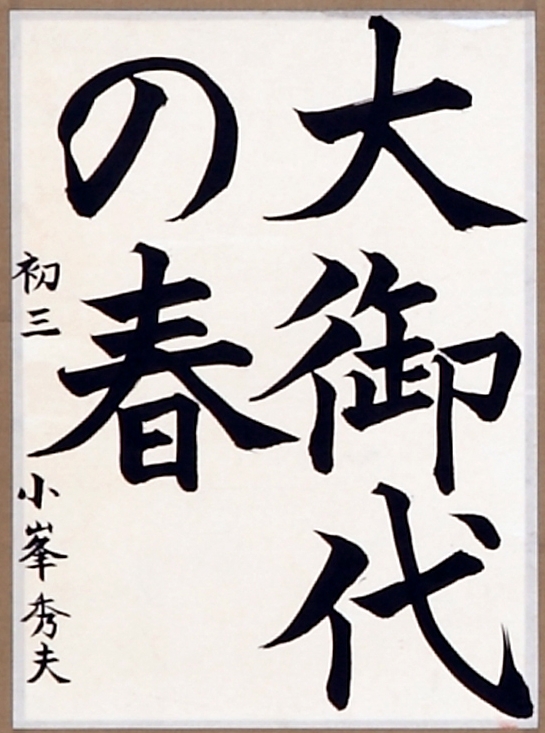 大御代
の春
初三 小峯秀夫